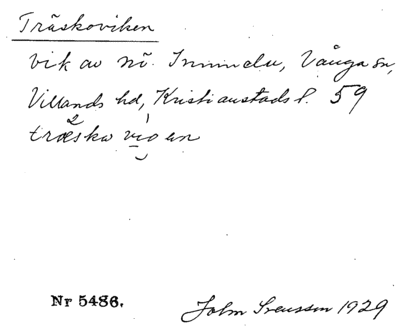 Träskoviken
vik av nö. Immeln, Vånga sn,
Villands hd, Kristianstads l. 59
træsko vigen
Nr 5486.
John Svensson 1929